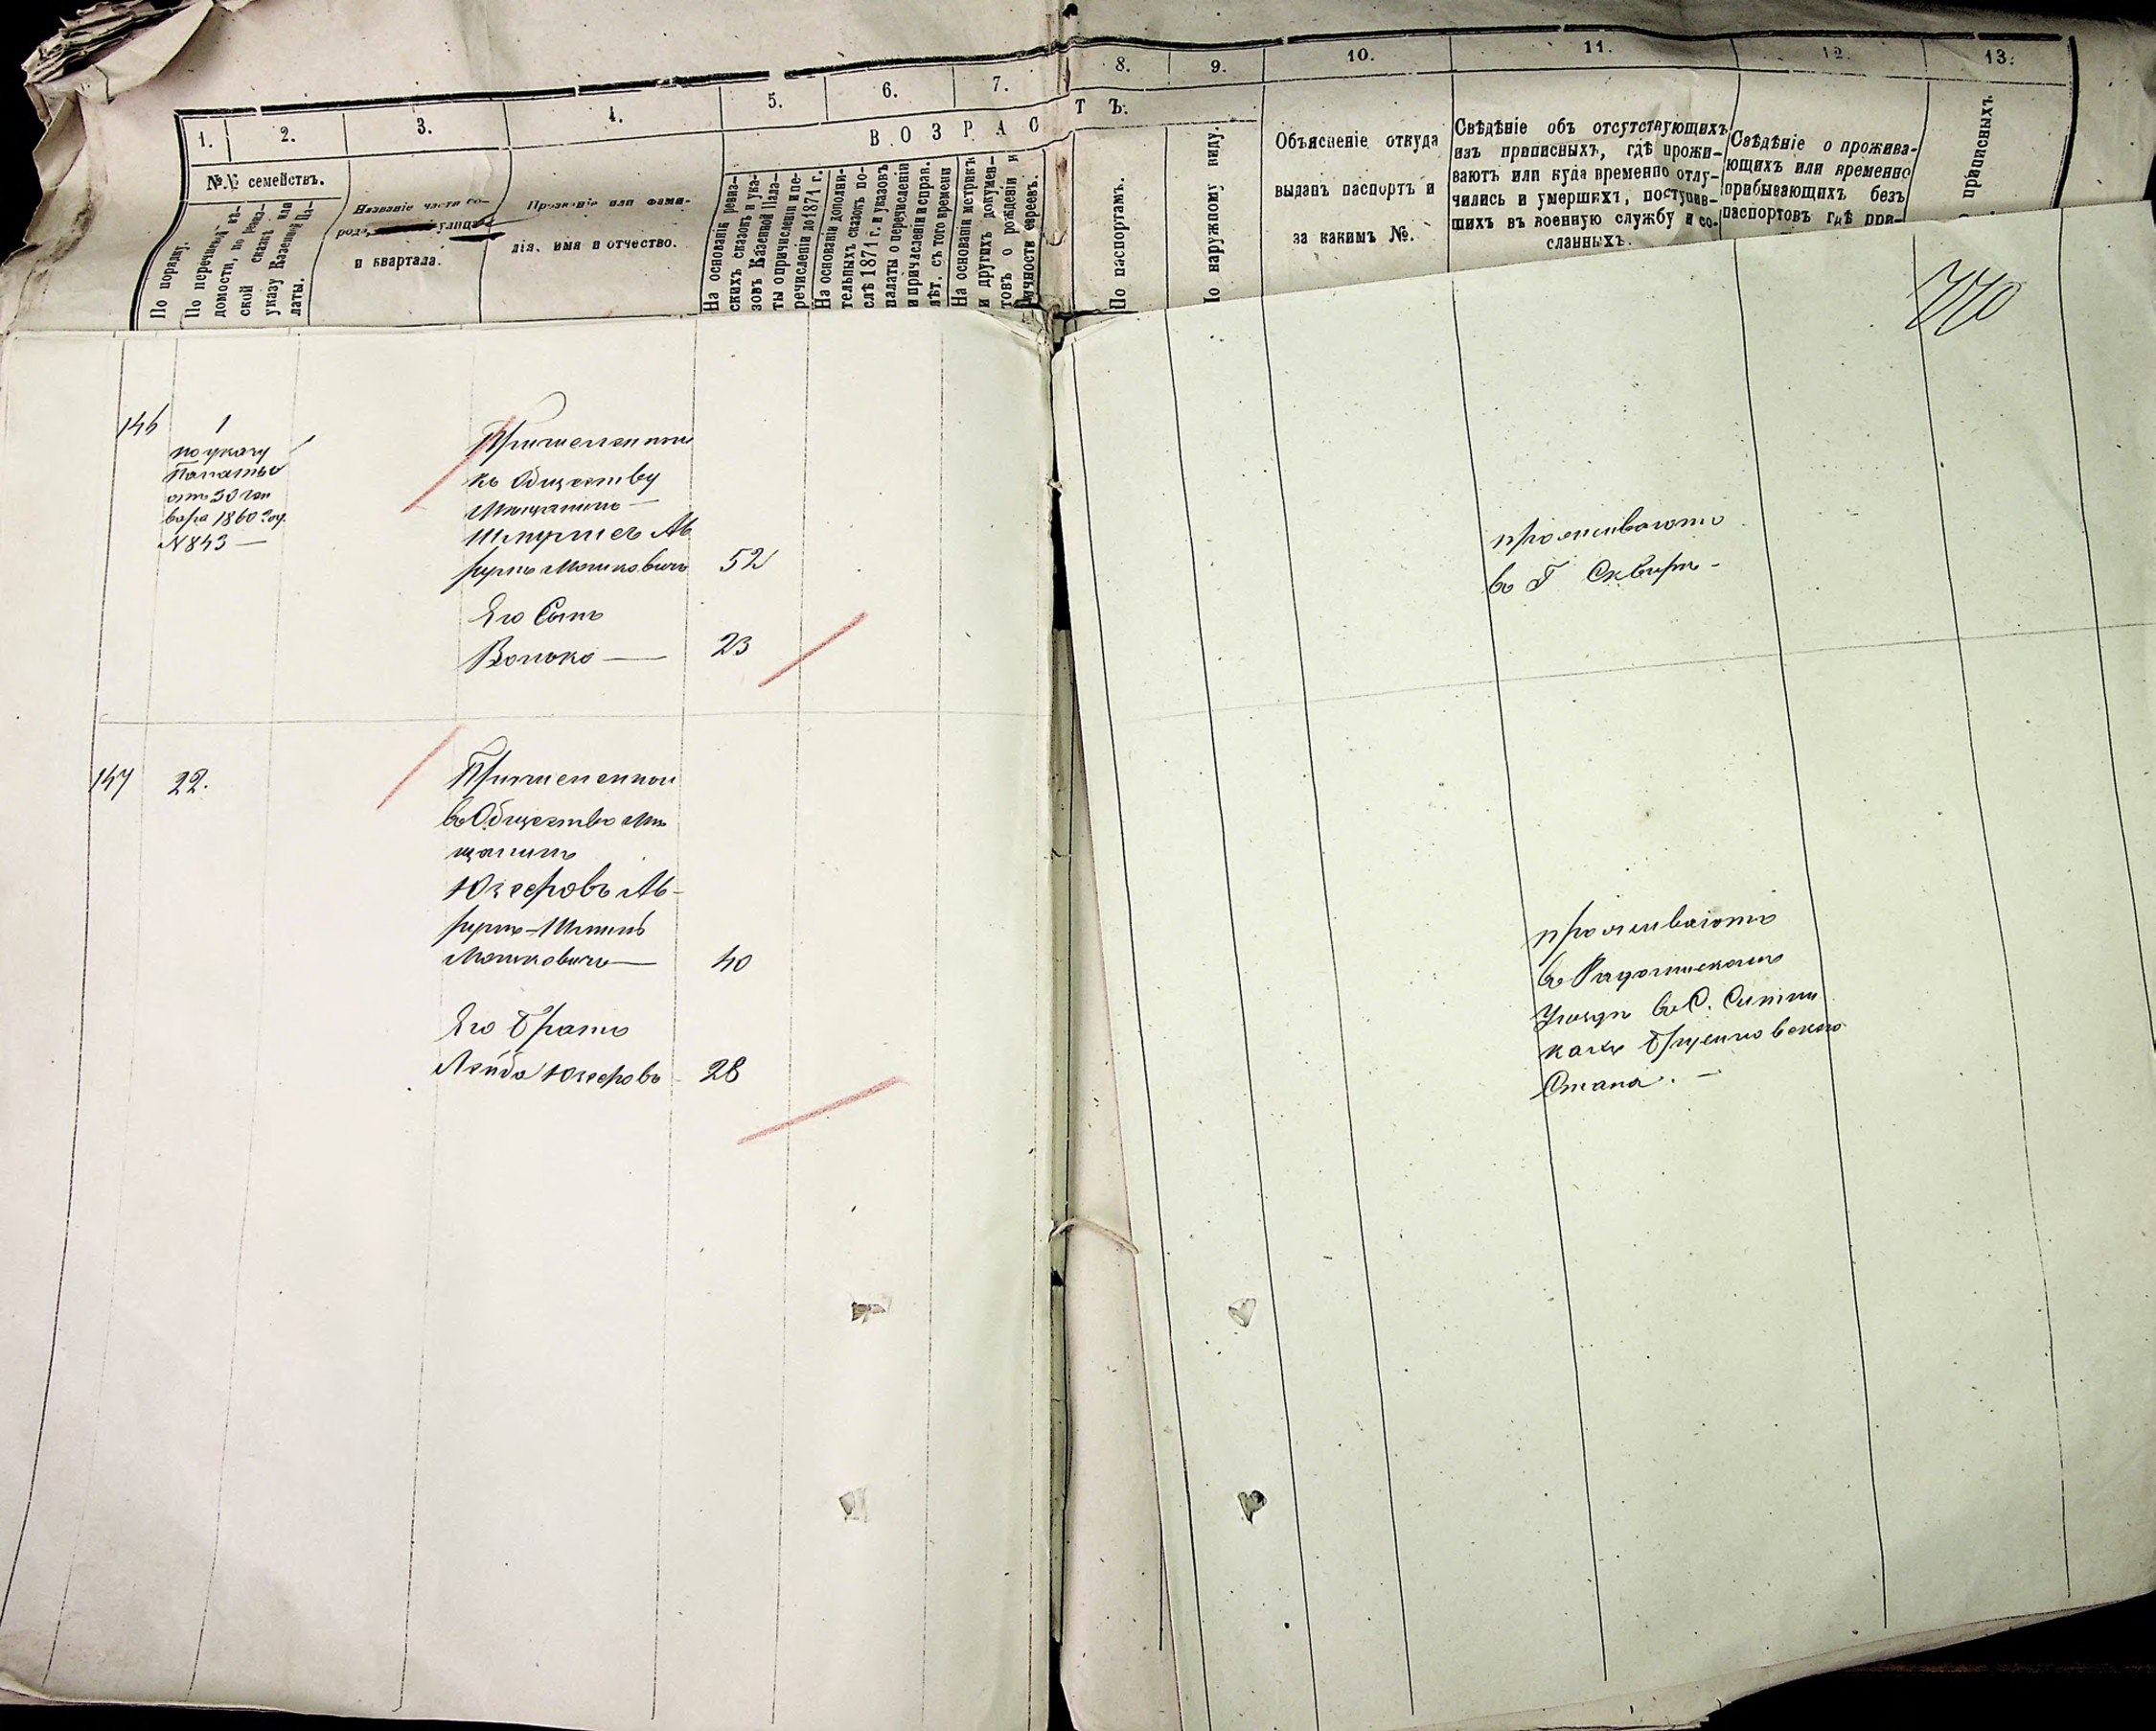 1.
2.
3.
4.
5.
6.
7.
8.
9.
10.
11.
12.
13.
В О З Р А С
Т Ъ.
№.№ семействъ.
По порядку.
По перечневой вѣ-
домости, по ревиз-
ской сказкѣ или
указу Казенной Па-
латы.
Названіе части го-
рода, улицы
и квартала.
Прозваніе или фами-
лія, имя и отчество.
На основаніи ревиз-
скихъ сказокъ и ука-
зовъ Казенной Пала-
ты о причисленіи и пе-
речисленіи до 1871 г.
На основаніи дополни-
тельныхъ сказокъ по-
слѣ 1871 г. и указовъ
палаты о перечисленіи
и причисленіи и справ.
лѣт. съ того времени
На основаніи метрикъ
и другихъ докумен-
товъ о рожденіи и
личности евреевъ.
По паспортамъ.
По наружному виду.
Объясненіе откуда
выданъ паспортъ и
за какимъ №.
Свѣдѣніе объ отсутствующихъ
изъ приписныхъ, гдѣ прожи-
ваютъ или куда временно отлу-
чились и умершихъ, поступив-
шихъ въ военную службу и со-
сланныхъ.
Свѣдѣніе о прожива-
ющихъ или временно
прибывающихъ безъ
паспортовъ гдѣ при-
приписныхъ
146
1
по указу
Палаты
отъ 30 Ген
варя 1860 год.
N 843 —
къ Обществу
Мещанинъ —
Ав
румъ Мошковичъ 52
Его Сынъ
Волько — 23
проживаютъ
въ Г Сквирѣ -
147
22.
въ Общество Мѣ
щанинъ
Юзефовъ Ав-
румъ-
Мошковичъ — 40
Его Братъ
Лейба Юзефовъ 28
проживаютъ
въ Радомыскомъ
Уѣздѣ въ С. Ситни
кахъ Брусиловскаго
Стана. —